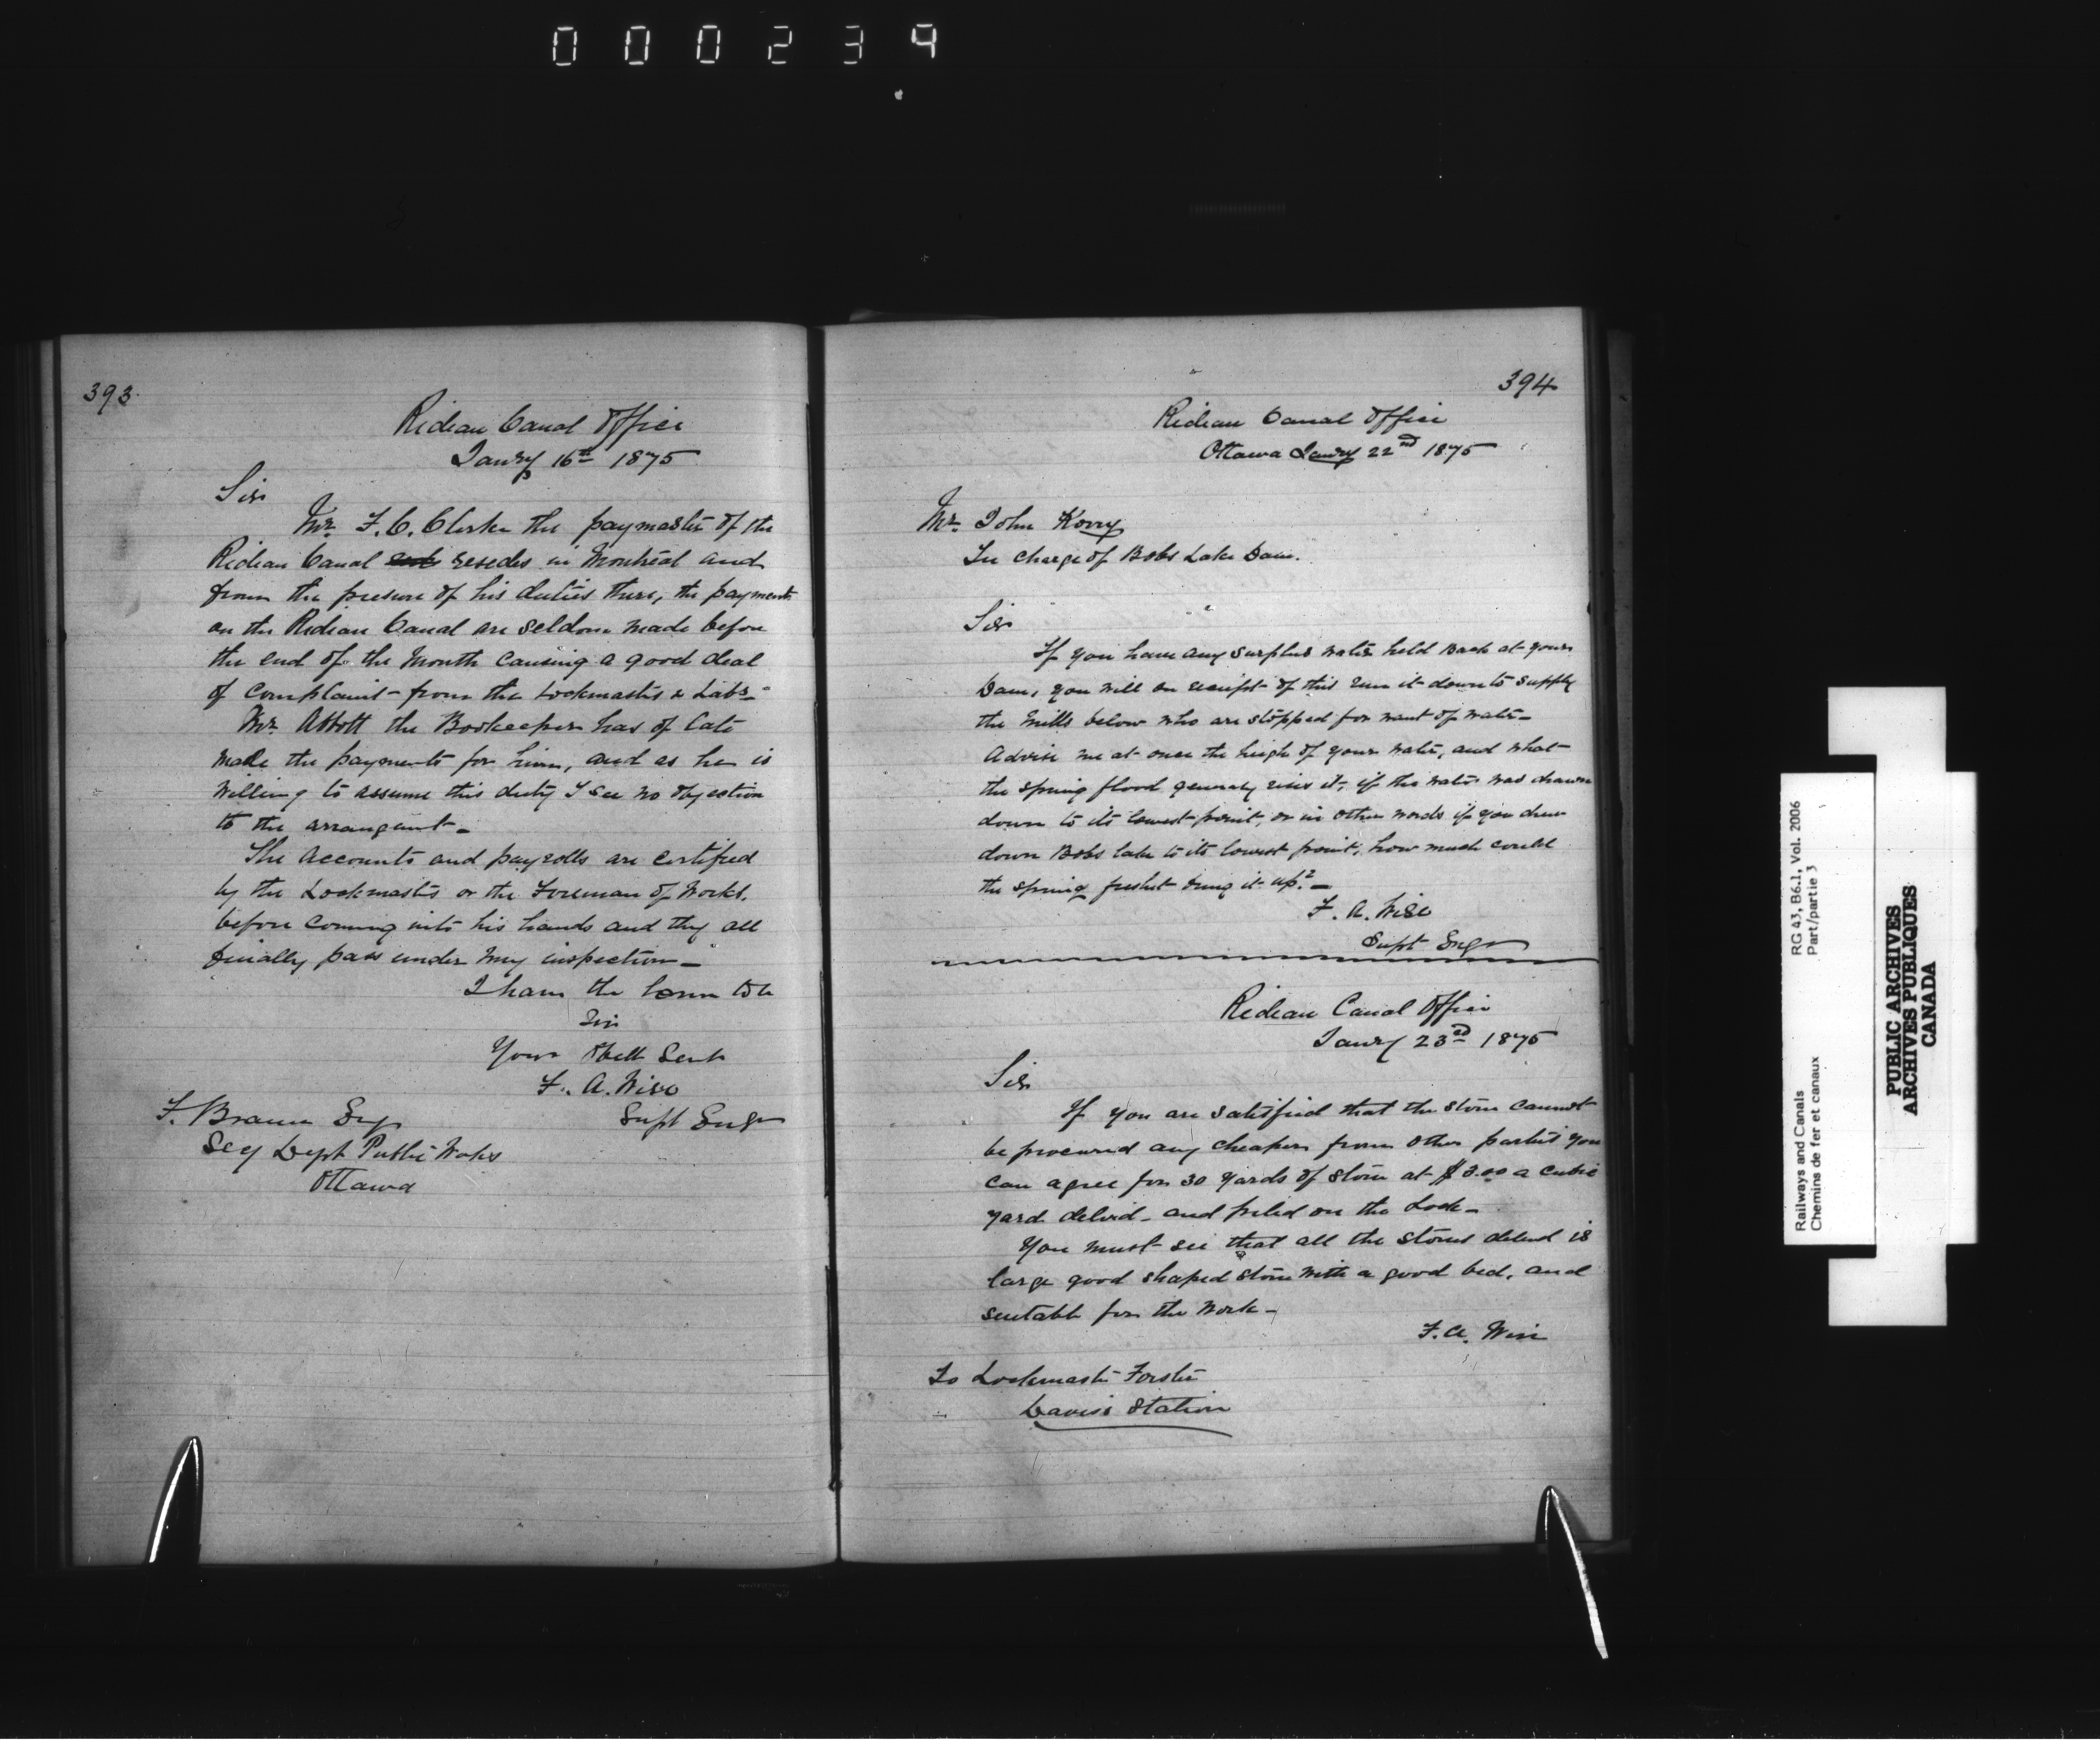 000234
393
Rideau Canal Office
Janry 16th 1875
Sir
Mr. F. C. Clerke the paymaster of the
Rideau Canal resedes in Montreal and
from the presure of his duties there, the payments
on the Rideau Canal are seldom made before
the end of the Month causing a good deal
of complaint from the Lockmasters & Labs-
Mr. Abbott the Bookeeper has of late
made the payments for him, and as he is
willing to assume this duty I see no objection
to the arrangemt-
The Accounts and payrolls are certified
by the Lockmasters or the Foreman of Works.
before coming into his hands and they all
finally pass under my inspection-
I have the honor to be
Sir
Your Obedt Servt
F. A. Wise
Supt Engr
F. Braun Esq
Secy Dept Public Works
Ottawa
394
Rideau Canal Office
Ottawa Janry 22nd 1875
Mr. John Korry
In charge of Bobs Lake Dam.
Sir
If you have any surplus water held back at your
Dam, you will on receipt of this run it down to supply
the Mills below who are stopped for want of water-
Advise me at once the heigh of your water, and what
the spring flood generaly rises it, if the water was drawn
down to its lowest point, or in other words if you drew
down Bobs lake to its lowest point, how much could
the spring freshet bring it up?-
F. A. Wise
Supt Engr
Rideau Canal Office
Janry 23rd 1875
Sir
If you are satisfied that the stone cannot
be procured any cheaper from other parties you
can agree for 30 yards of stone at $3.00 a cubic
yard delivd- and piled on the Lock-
You must see that all the stones delivd is
large good shaped stone with a good bed, and
suitable for the work-
F. A. Wise
To Lockmaster Forster
Davis's Station
Railways and Canals
Chemins de fer et canaux
RG 43, B6.1, Vol. 2006
Part/partie 3
PUBLIC ARCHIVES
ARCHIVES PUBLIQUES
CANADA